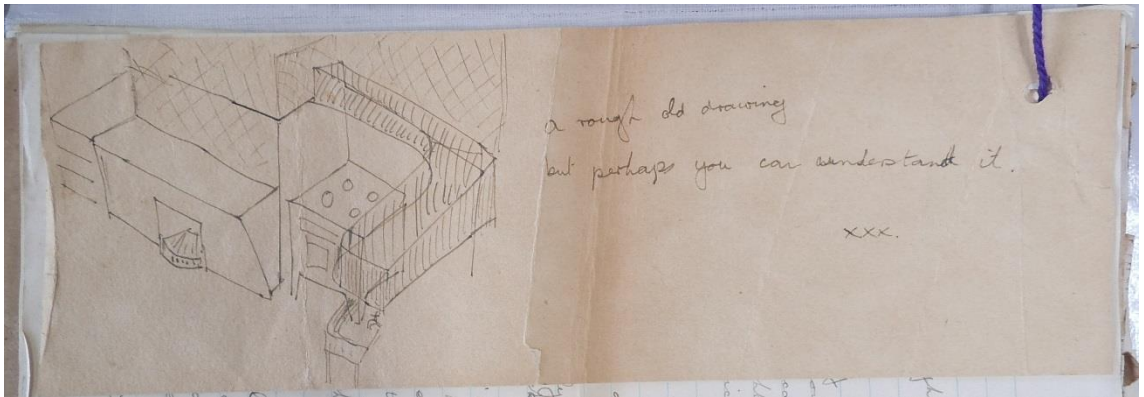 a rough old drawing
but perhaps you can understand it.
xxx.